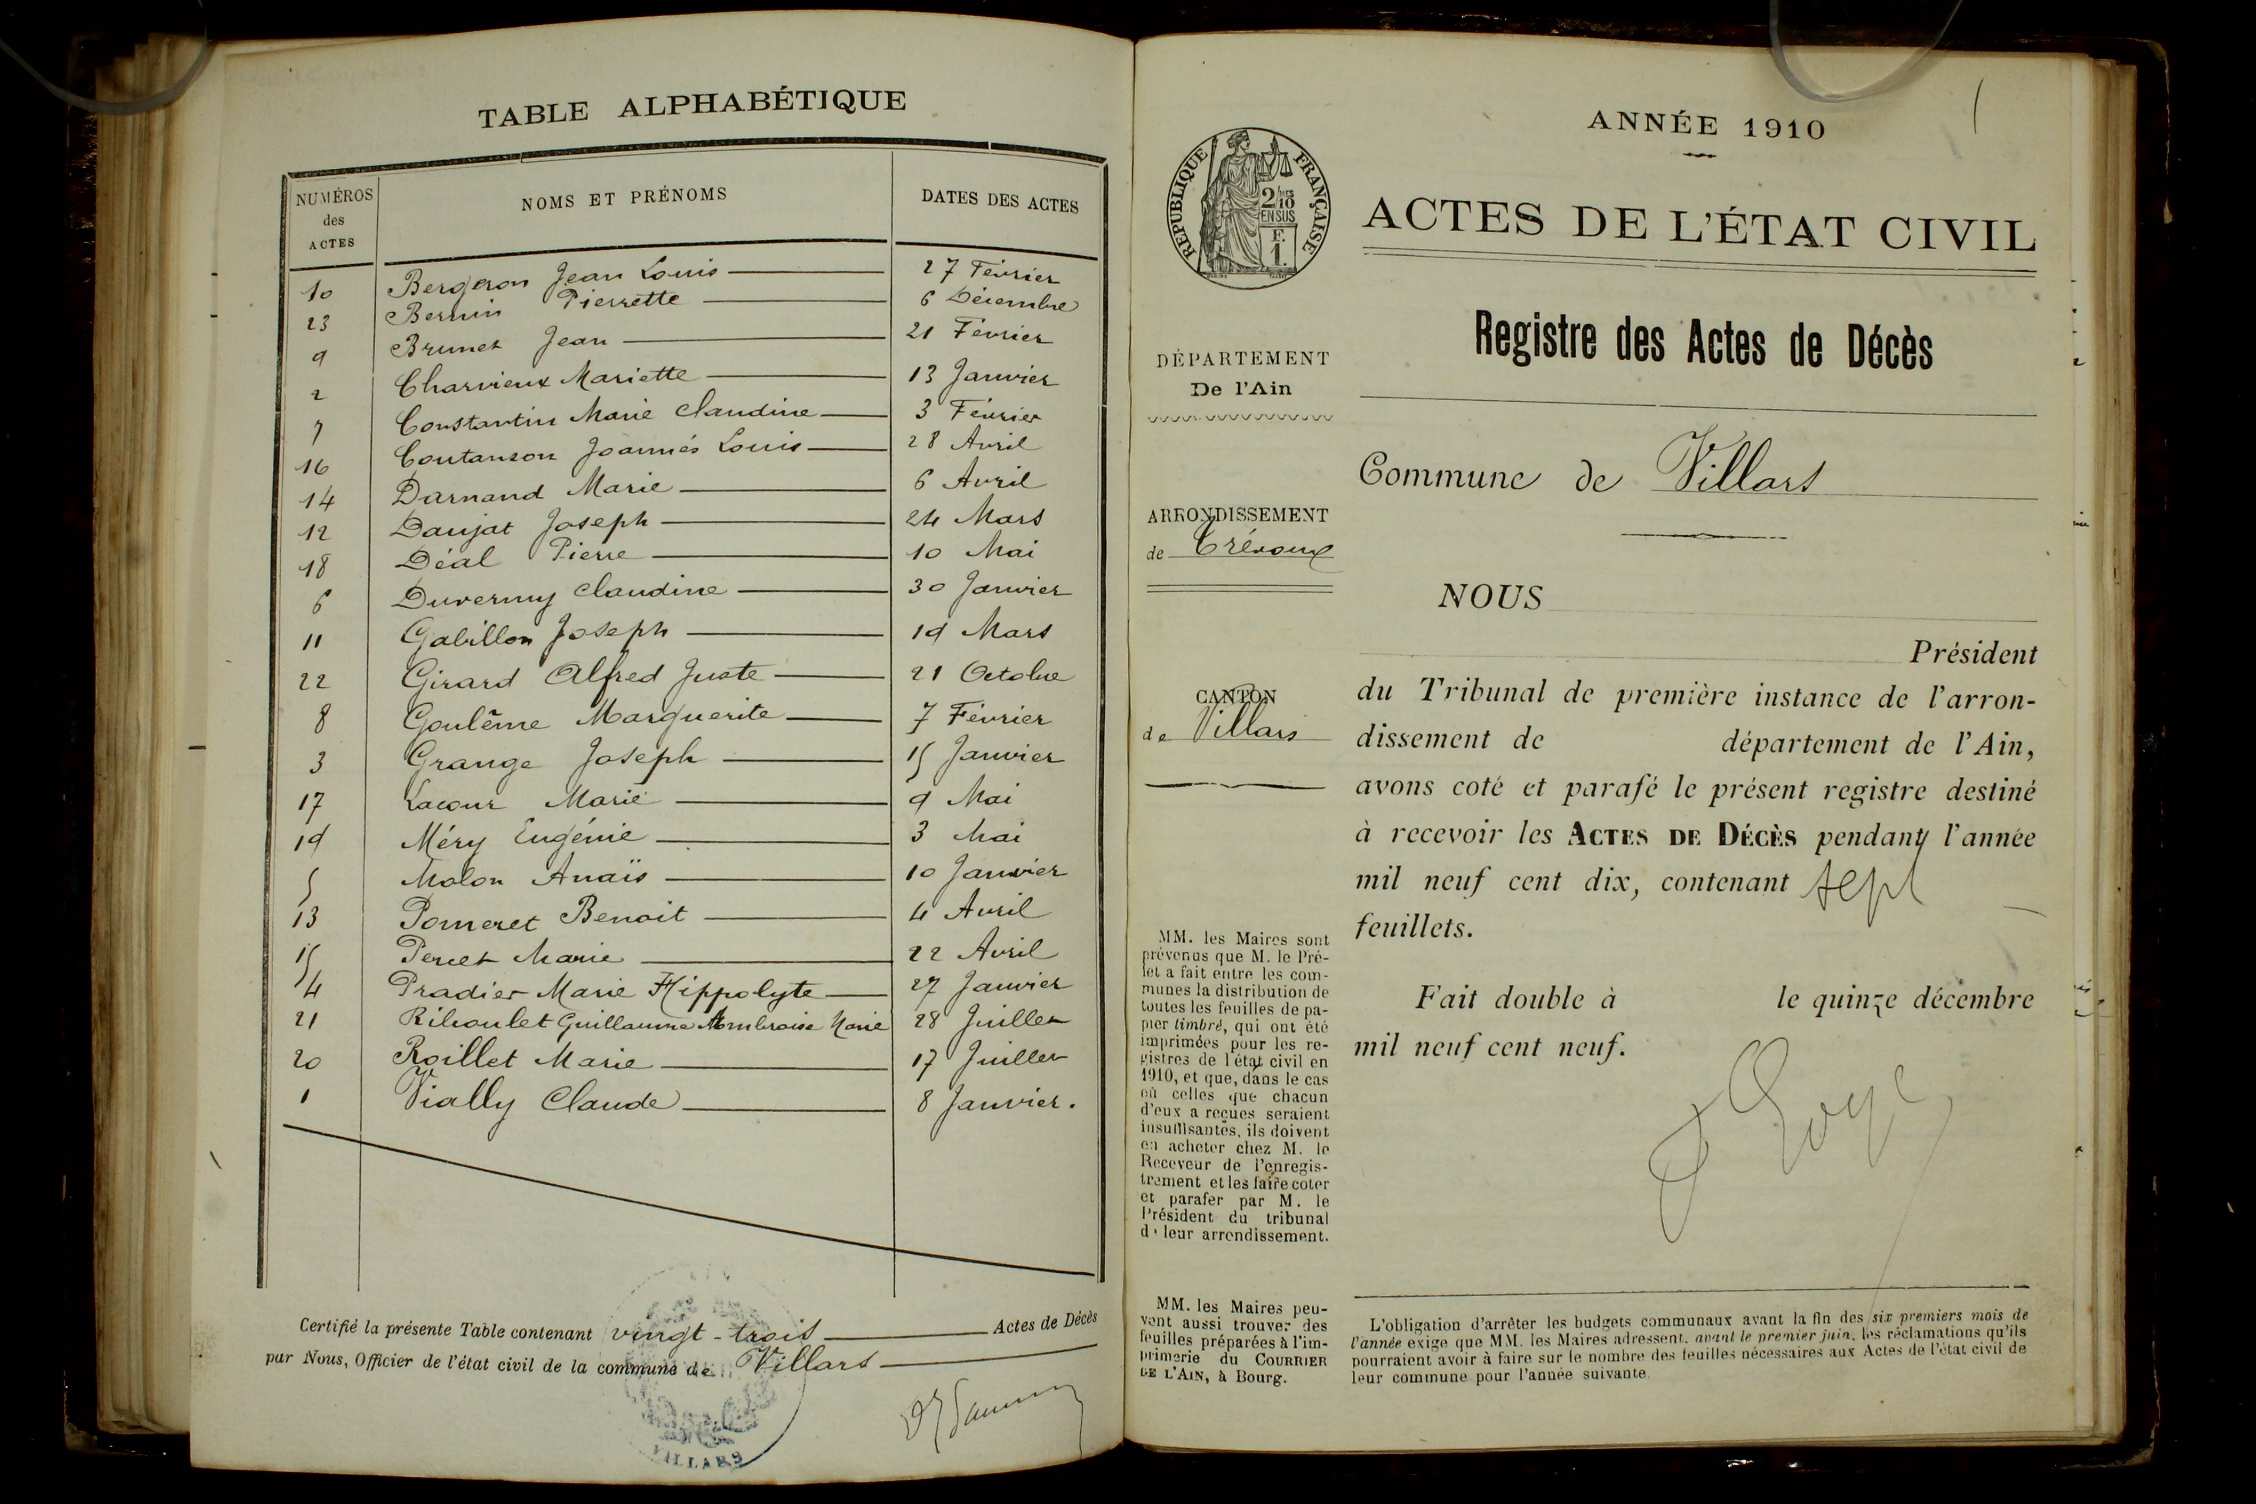 TABLE ALPHABÉTIQUE
NUMÉROS des ACTES NOMS ET PRÉNOMS DATES DES ACTES
10 Bergeron Jean Louis 27 Février
23 Bernin Pierrette 6 Décembre
9 Brunet Jean 21 Février
2 Charvieux Mariette 13 Janvier
7 Constantin Marie Claudine 3 Février
16 Coutanson Joannès Louis 28 Avril
14 Darnand Marie 6 Avril
12 Daujat Joseph 24 Mars
18 Déal Pierre 10 Mai
6 Duvernay Claudine 30 Janvier
11 Gabillon Joseph 19 Mars
22 Girard Alfred Juste 21 Octobre
8 Goulême Marguerite 7 Février
3 Grange Joseph 15 Janvier
17 Lacour Marie 9 Mai
19 Méry Eugénie 3 Mai
5 Molon Anaïs 10 Janvier
13 Pomeret Benoit 4 Avril
15 Percet Marie 22 Avril
4 Pradier Marie Hippolyte 27 Janvier
21 Riboulet Guillaume Ambroise Marie 28 Juillet
20 Roillet Marie 17 Juillet
1 Vially Claude 8 Janvier.
Certifié la présente Table contenant vingt-trois Actes de Décès
par Nous, Officier de l'état civil de la commune de Villars
VILLARS
1
ANNÉE 1910
RÉPUBLIQUE FRANÇAISE
2/10
EN SUS
F.
1.
ACTES DE L'ÉTAT CIVIL
Registre des Actes de Décès
DÉPARTEMENT
De l'Ain
Commune de Villars
ARRONDISSEMENT
de Trévoux
CANTON
de Villars
NOUS
Président
du Tribunal de première instance de l'arron-
dissement de département de l'Ain,
avons coté et parafé le présent registre destiné
à recevoir les ACTES DE DÉCÈS pendant l'année
mil neuf cent dix, contenant sept
feuillets.
Fait double à le quinze décembre
mil neuf cent neuf.
MM. les Maires sont
prévenus que M. le Pré-
fet a fait entre les com-
munes la distribution de
toutes les feuilles de pa-
pier timbré, qui ont été
imprimées pour les re-
gistres de l'état civil en
1910, et que, dans le cas
où celles que chacun
d'eux a reçues seraient
insuffisantes, ils doivent
en acheter chez M. le
Receveur de l'enregis-
trement et les faire coter
et parafer par M. le
Président du tribunal
de leur arrondissement.
MM. les Maires peu-
vent aussi trouver des
feuilles préparées à l'im-
primerie du COURRIER
DE L'AIN, à Bourg.
L'obligation d'arrêter les budgets communaux avant la fin des six premiers mois de
l'année exige que MM. les Maires adressent, avant le premier juin, les réclamations qu'ils
pourraient avoir à faire sur le nombre des feuilles nécessaires aux Actes de l'état civil de
leur commune pour l'année suivante.